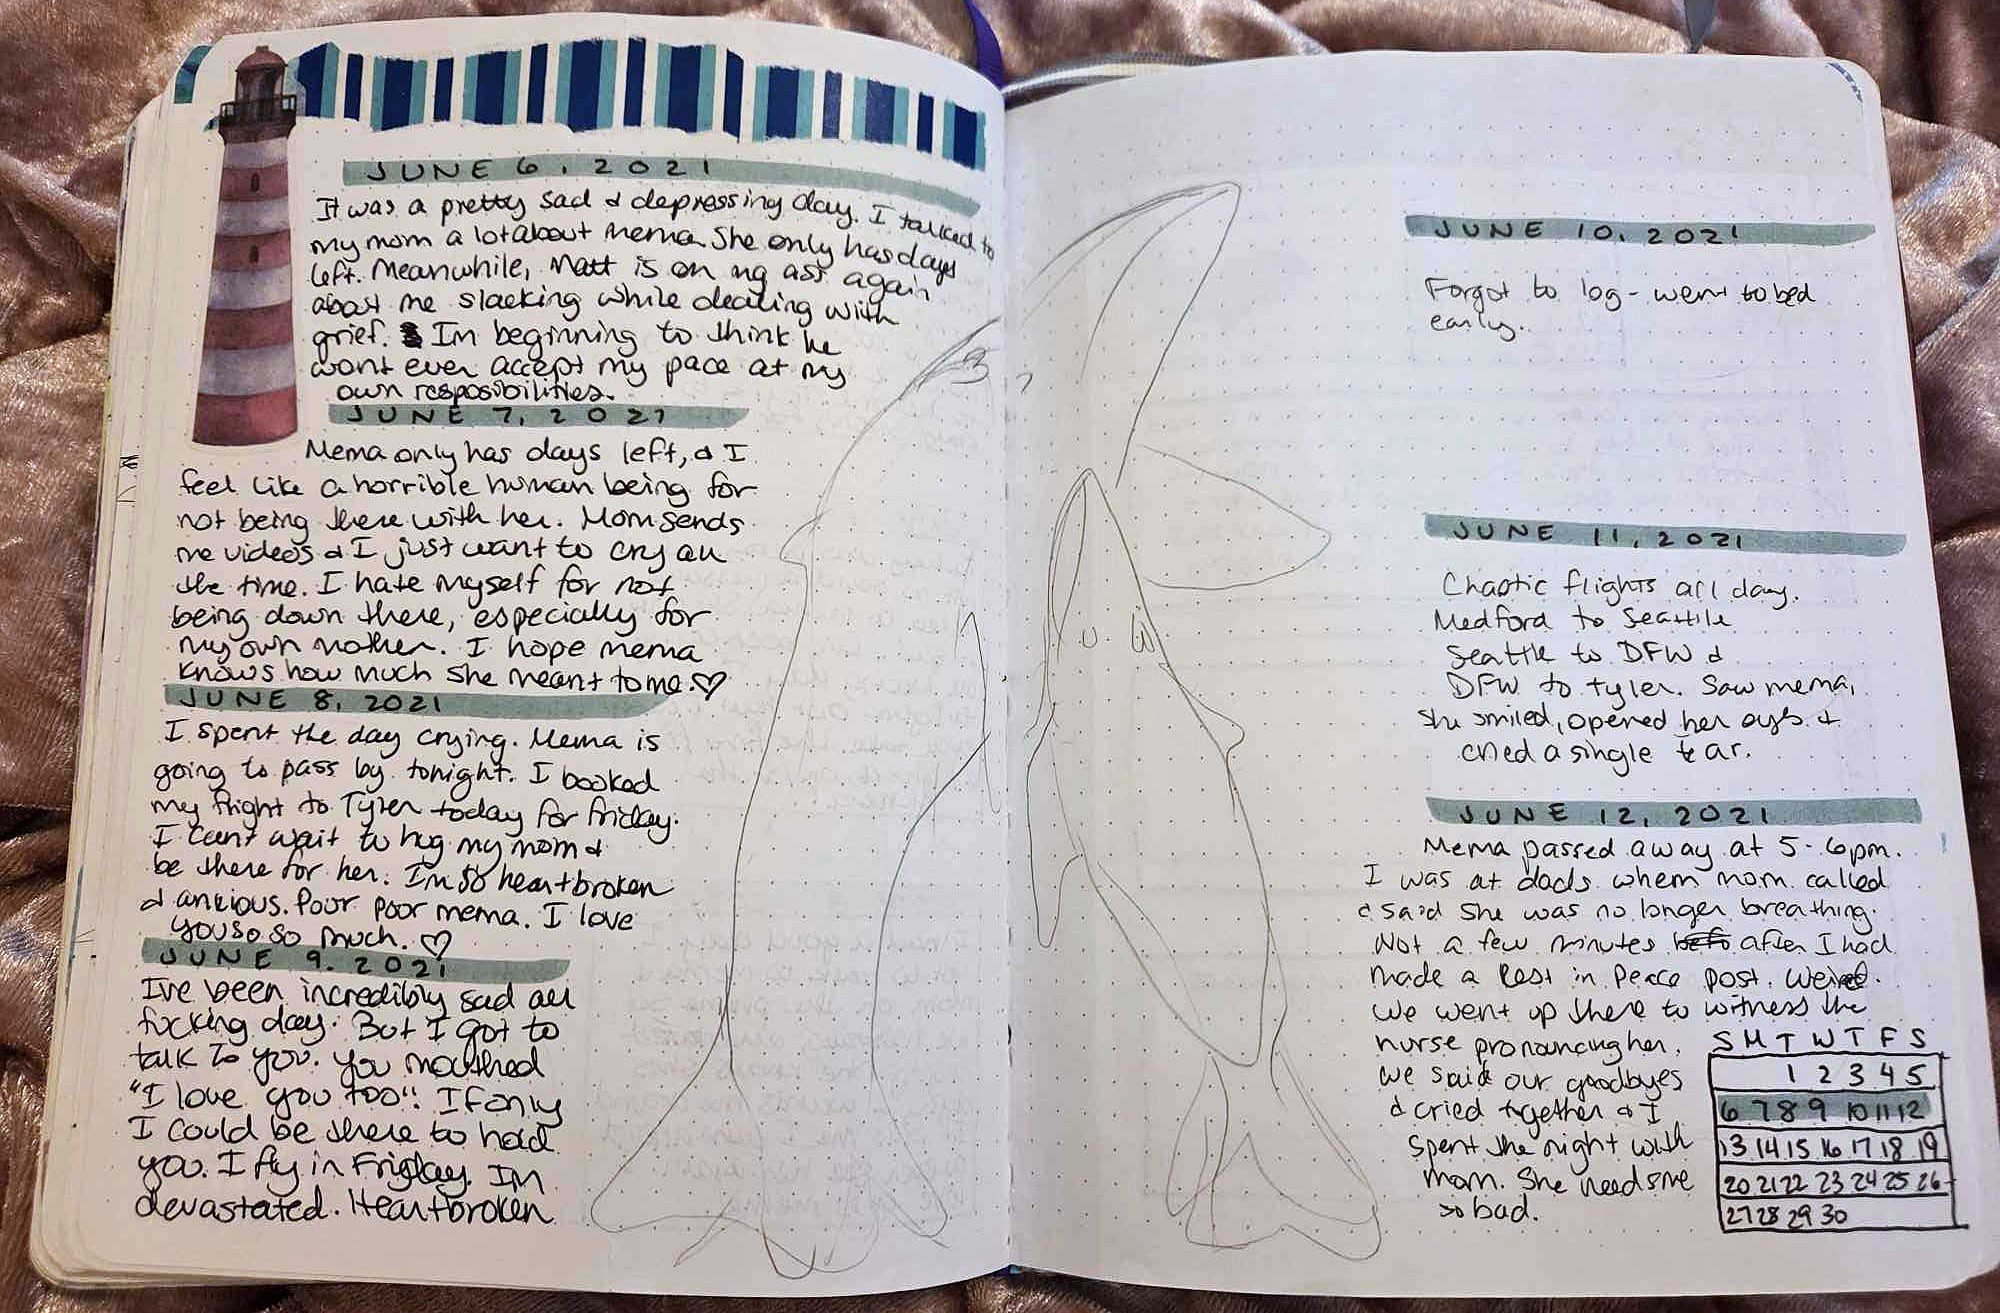 JUNE 6, 2021
It was a pretty sad & depressing day. I talked to
my mom a lot about mema. She only has days
left. Meanwhile, Matt is on my ass again
about me slacking while dealing with
grief. Im beginning to think he
wont ever accept my pace at my
own resposibilities.
JUNE 7, 2021
Mema only has days left, & I
feel like a horrible human being for
not being there with her. Mom sends
me videos & I just want to cry all
the time. I hate myself for not
being down there, especially for
my own mother. I hope mema
knows how much she meant to me. ♡
JUNE 8, 2021
I spent the day crying. Mema is
going to pass by tonight. I booked
my flight to Tyler today for friday.
I cant wait to hug my mom &
be there for her. Im so heartbroken
& anxious. Poor poor mema. I love
you so so much. ♡
JUNE 9. 2021
Ive been incredibly sad all
fucking day. But I got to
talk to you. you mouthed
"I love you too". If only
I could be there to hold
you. I fly in Friday. Im
devastated. Heartbroken
JUNE 10, 2021
Forgot to log - went to bed
early.
JUNE 11, 2021
Chaotic flights all day.
Medford to Seattle
Seattle to DFW &
DFW to tyler. Saw mema,
she smiled, opened her eyes &
cried a single tear.
JUNE 12, 2021
Mema passed away at 5-6pm.
I was at dads when mom called
& said she was no longer breathing.
Not a few minutes befo after I had
made a Rest in Peace post. Weird.
We went up there to witness the
nurse pronouncing her.
We said our goodbyes
& cried together & I
spent the night with
mom. She needs me
so bad.
S M T W T F S
1 2 3 4 5
6 7 8 9 10 11 12
13 14 15 16 17 18 19
20 21 22 23 24 25 26
27 28 29 30